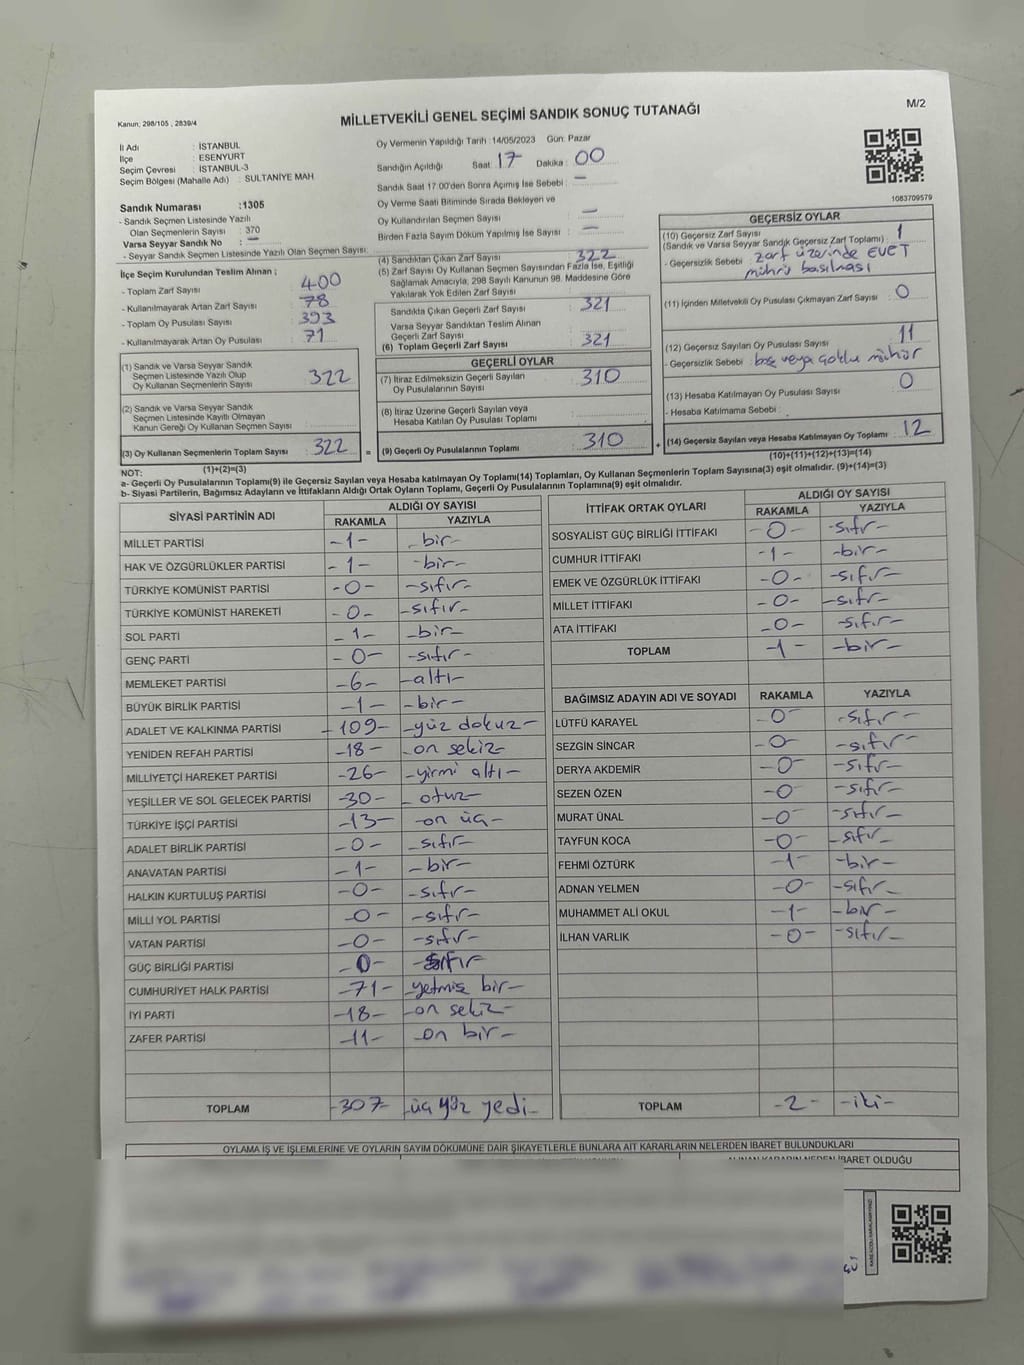 MİLLETVEKİLİ GENEL SEÇİMİ SANDIK SONUÇ TUTANAĞI
M/2
Kanun; 298/105 , 2839/4
İl Adı : İSTANBUL
İlçe : ESENYURT
Seçim Çevresi : İSTANBUL-3
Seçim Bölgesi (Mahalle Adı) : SULTANİYE MAH
Sandık Numarası :1305
- Sandık Seçmen Listesinde Yazılı
Olan Seçmenlerin Sayısı : 370
Varsa Seyyar Sandık No : —
- Seyyar Sandık Seçmen Listesinde Yazılı Olan Seçmen Sayısı:
İlçe Seçim Kurulundan Teslim Alınan ;
- Toplam Zarf Sayısı : 400
- Kullanılmayarak Artan Zarf Sayısı : 78
- Toplam Oy Pusulası Sayısı : 393
- Kullanılmayarak Artan Oy Pusulası : 71
(1) Sandık ve Varsa Seyyar Sandık
Seçmen Listesinde Yazılı Olup
Oy Kullanan Seçmenlerin Sayısı : 322
(2) Sandık ve Varsa Seyyar Sandık
Seçmen Listesinde Kayıtlı Olmayan
Kanun Gereği Oy Kullanan Seçmen Sayısı :
(3) Oy Kullanan Seçmenlerin Toplam Sayısı : 322
(1)+(2)=(3)
Oy Vermenin Yapıldığı Tarih :14/05/2023 Gün: Pazar
Sandığın Açıldığı Saat : 17 Dakika : 00
Sandık Saat 17.00'den Sonra Açımış İse Sebebi : —
Oy Verme Saati Bitiminde Sırada Bekleyen ve
Oy Kullandırılan Seçmen Sayısı : —
Birden Fazla Sayım Döküm Yapılmış İse Sayısı : —
(4) Sandıktan Çıkan Zarf Sayısı : 322
(5) Zarf Sayısı Oy Kullanan Seçmen Sayısından Fazla İse, Eşitliği
Sağlamak Amacıyla, 298 Sayılı Kanunun 98. Maddesine Göre
Yakılarak Yok Edilen Zarf Sayısı :
Sandıkta Çıkan Geçerli Zarf Sayısı : 321
Varsa Seyyar Sandıktan Teslim Alınan
Geçerli Zarf Sayısı :
(6) Toplam Geçerli Zarf Sayısı : 321
GEÇERLİ OYLAR
(7) İtiraz Edilmeksizin Geçerli Sayılan
Oy Pusulalarının Sayısı : 310
(8) İtiraz Üzerine Geçerli Sayılan veya
Hesaba Katılan Oy Pusulası Toplamı :
= (9) Geçerli Oy Pusulalarının Toplamı : 310 +
1083709579
GEÇERSİZ OYLAR
(10) Geçersiz Zarf Sayısı
(Sandık ve Varsa Seyyar Sandık Geçersiz Zarf Toplamı) : 1
- Geçersizlik Sebebi : zarf üzerinde EVET
mührü basılması
(11) İçinden Milletvekili Oy Pusulası Çıkmayan Zarf Sayısı : 0
(12) Geçersiz Sayılan Oy Pusulası Sayısı : 11
- Geçersizlik Sebebi : boş veya çoklu mühür
(13) Hesaba Katılmayan Oy Pusulası Sayısı : 0
- Hesaba Katılmama Sebebi :
(14) Geçersiz Sayılan veya Hesaba Katılmayan Oy Toplamı : 12
(10)+(11)+(12)+(13)=(14)
NOT:
a- Geçerli Oy Pusulalarının Toplamı(9) ile Geçersiz Sayılan veya Hesaba katılmayan Oy Toplamı(14) Toplamları, Oy Kullanan Seçmenlerin Toplam Sayısına(3) eşit olmalıdır. (9)+(14)=(3)
b- Siyasi Partilerin, Bağımsız Adayların ve İttifakların Aldığı Ortak Oyların Toplamı, Geçerli Oy Pusulalarının Toplamına(9) eşit olmalıdır.
SİYASİ PARTİNİN ADI ALDIĞI OY SAYISI
RAKAMLA YAZIYLA
MİLLET PARTİSİ -1- -bir-
HAK VE ÖZGÜRLÜKLER PARTİSİ -1- -bir-
TÜRKİYE KOMÜNİST PARTİSİ -0- -sıfır-
TÜRKİYE KOMÜNİST HAREKETİ -0- -sıfır-
SOL PARTİ -1- -bir-
GENÇ PARTİ -0- -sıfır-
MEMLEKET PARTİSİ -6- -altı-
BÜYÜK BİRLİK PARTİSİ -1- -bir-
ADALET VE KALKINMA PARTİSİ -109- -yüz dokuz-
YENİDEN REFAH PARTİSİ -18- -on sekiz-
MİLLİYETÇİ HAREKET PARTİSİ -26- -yirmi altı-
YEŞİLLER VE SOL GELECEK PARTİSİ -30- -otuz-
TÜRKİYE İŞÇİ PARTİSİ -13- -on üç-
ADALET BİRLİK PARTİSİ -0- -sıfır-
ANAVATAN PARTİSİ -1- -bir-
HALKIN KURTULUŞ PARTİSİ -0- -sıfır-
MİLLİ YOL PARTİSİ -0- -sıfır-
VATAN PARTİSİ -0- -sıfır-
GÜÇ BİRLİĞİ PARTİSİ -0- -sıfır-
CUMHURİYET HALK PARTİSİ -71- -yetmiş bir-
İYİ PARTİ -18- -on sekiz-
ZAFER PARTİSİ -11- -on bir-
TOPLAM -307- üç yüz yedi-
İTTİFAK ORTAK OYLARI ALDIĞI OY SAYISI
RAKAMLA YAZIYLA
SOSYALİST GÜÇ BİRLİĞİ İTTİFAKI -0- -sıfır-
CUMHUR İTTİFAKI -1- -bir-
EMEK VE ÖZGÜRLÜK İTTİFAKI -0- -sıfır-
MİLLET İTTİFAKI -0- -sıfır-
ATA İTTİFAKI -0- -sıfır-
TOPLAM -1- -bir-
BAĞIMSIZ ADAYIN ADI VE SOYADI RAKAMLA YAZIYLA
LÜTFÜ KARAYEL -0- -sıfır-
SEZGİN SİNCAR -0- -sıfır-
DERYA AKDEMİR -0- -sıfır-
SEZEN ÖZEN -0- -sıfır-
MURAT ÜNAL -0- -sıfır-
TAYFUN KOCA -0- -sıfır-
FEHMİ ÖZTÜRK -1- -bir-
ADNAN YELMEN -0- -sıfır-
MUHAMMET ALİ OKUL -1- -bir-
İLHAN VARLIK -0- -sıfır-
TOPLAM -2- -iki-
OYLAMA İŞ VE İŞLEMLERİNE VE OYLARIN SAYIM DÖKÜMÜNE DAİR ŞİKAYETLERLE BUNLARA AİT KARARLARIN NELERDEN İBARET BULUNDUKLARI
ALINAN KARARIN NEDEN İBARET OLDUĞU